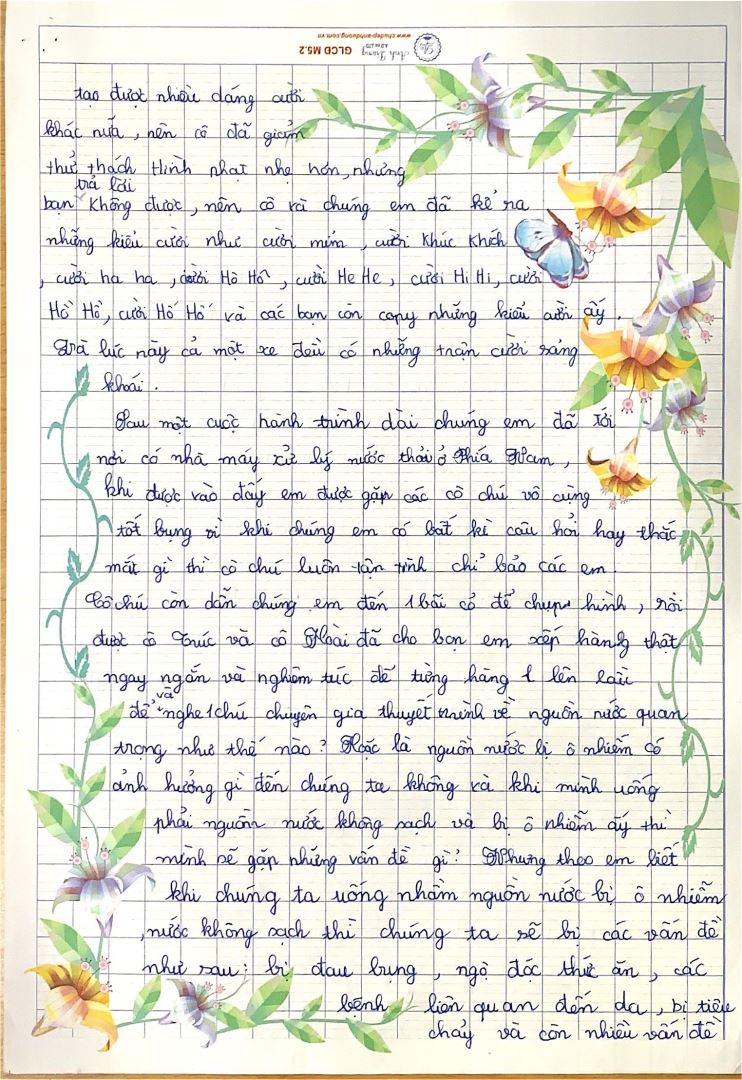 www.chudep-anhduong.com.vn
GLCĐ M5.2
Ánh Dương
tạo được nhiều dáng cười
khác nữa, nên cô đã giảm
thử thách Hình phạt nhẹ hơn, nhưng
trả lời
bạn không được, nên cô và chúng em đã kể ra
những kiểu cười như cười mỉm, cười khúc khích
, cười ha ha, cười Hô Hô, cười He He, cười Hi Hi, cười
Hồ Hồ, cười Hố Hố và các bạn còn copy những kiểu cười ấy.
Và lúc này cả một xe đều có những trận cười sảng
khoái.
Sau một cuộc hành trình dài chúng em đã tới
nơi có nhà máy xử lý nước thải ở Phía Nam,
khi được vào đấy em được gặp các cô chú vô cùng
tốt bụng vì khi chúng em có bất kì câu hỏi hay thắc
mắt gì thì cô chú luôn tận tình chỉ bảo các em.
Cô chú còn dẫn chúng em đến 1 bãi cỏ để chụp hình, rồi
được cô Trúc và cô Hoài đã cho bọn em xếp hàng thật
ngay ngắn và nghiêm túc để từng hàng 1 lên lầu
và
để nghe 1 chú chuyên gia thuyết trình về nguồn nước quan
trọng như thế nào? Hoặc là nguồn nước bị ô nhiễm có
ảnh hưởng gì đến chúng ta không và khi mình uống
phải nguồn nước không sạch và bị ô nhiễm ấy thì
mình sẽ gặp những vấn đề gì? Nhưng theo em biết
khi chúng ta uống nhầm nguồn nước bị ô nhiễm
, nước không sạch thì chúng ta sẽ bị các vấn đề
như sau: bị đau bụng, ngộ độc thức ăn, các
bệnh liên quan đến da, bị tiêu
chảy và còn nhiều vấn đề